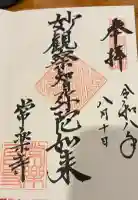 奉拝
令和八年
八月十日
妙觀察智弥陀如来
常楽寺